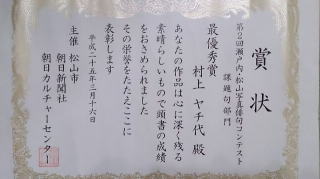 賞状
第2回瀬戸内・松山写真俳句コンテスト
課題句部門
最優秀賞
村上 ヤチ代 殿
あなたの作品は心に深く残る
素晴らしいもので頭書の成績
をおさめられました
その栄誉をたたえここに
表彰します
平成二十五年三月十六日
主催 松山市
朝日新聞社
朝日カルチャーセンター